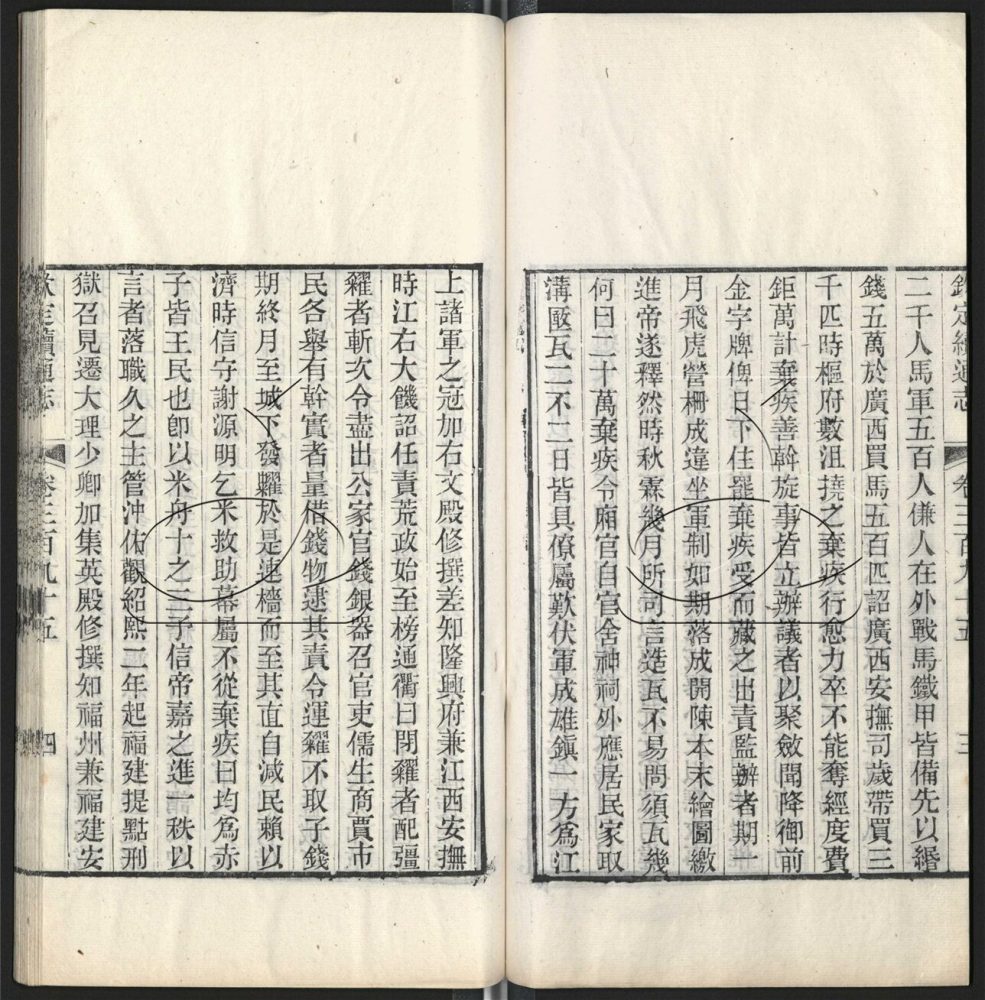 欽定續通志 卷三百九十五 三
二千人馬軍五百人傔人在外戰馬鐵甲皆備先以緡
錢五萬於廣西買馬五百匹詔廣西安撫司歲帶買三
千匹時樞府數沮撓之棄疾行愈力卒不能奪經度費
鉅萬計棄疾善斡旋事皆立辦議者以聚斂聞降御前
金字牌俾日下住罷棄疾受而藏之出責監辦者期一
月飛虎營柵成違坐軍制如期落成開陳本末繪圖繳
進帝遂釋然時秋霖幾月所司言造瓦不易問須瓦幾
何曰二十萬棄疾令廂官自官舍神祠外應居民家取
溝㽃瓦二不二日皆具僚屬歎伏軍成雄鎮一方為江
上諸軍之冠加右文殿修撰差知隆興府兼江西安撫
時江右大饑詔任責荒政始至榜通衢曰閉糴者配彊
糴者斬次令盡出公家官錢銀器召官吏儒生商賈市
民各舉有幹實者量借錢物逮其責令運糴不取子錢
期終月至城下發糶於是連檣而至其直自減民賴以
濟時信守謝源明乞米救助幕屬不從棄疾曰均為赤
子皆王民也卽以米舟十之三予信帝嘉之進一秩以
言者落職久之主管沖佑觀紹熙二年起福建提點刑
獄召見遷大理少卿加集英殿修撰知福州兼福建安
欽定續通志 卷三百九十五 四